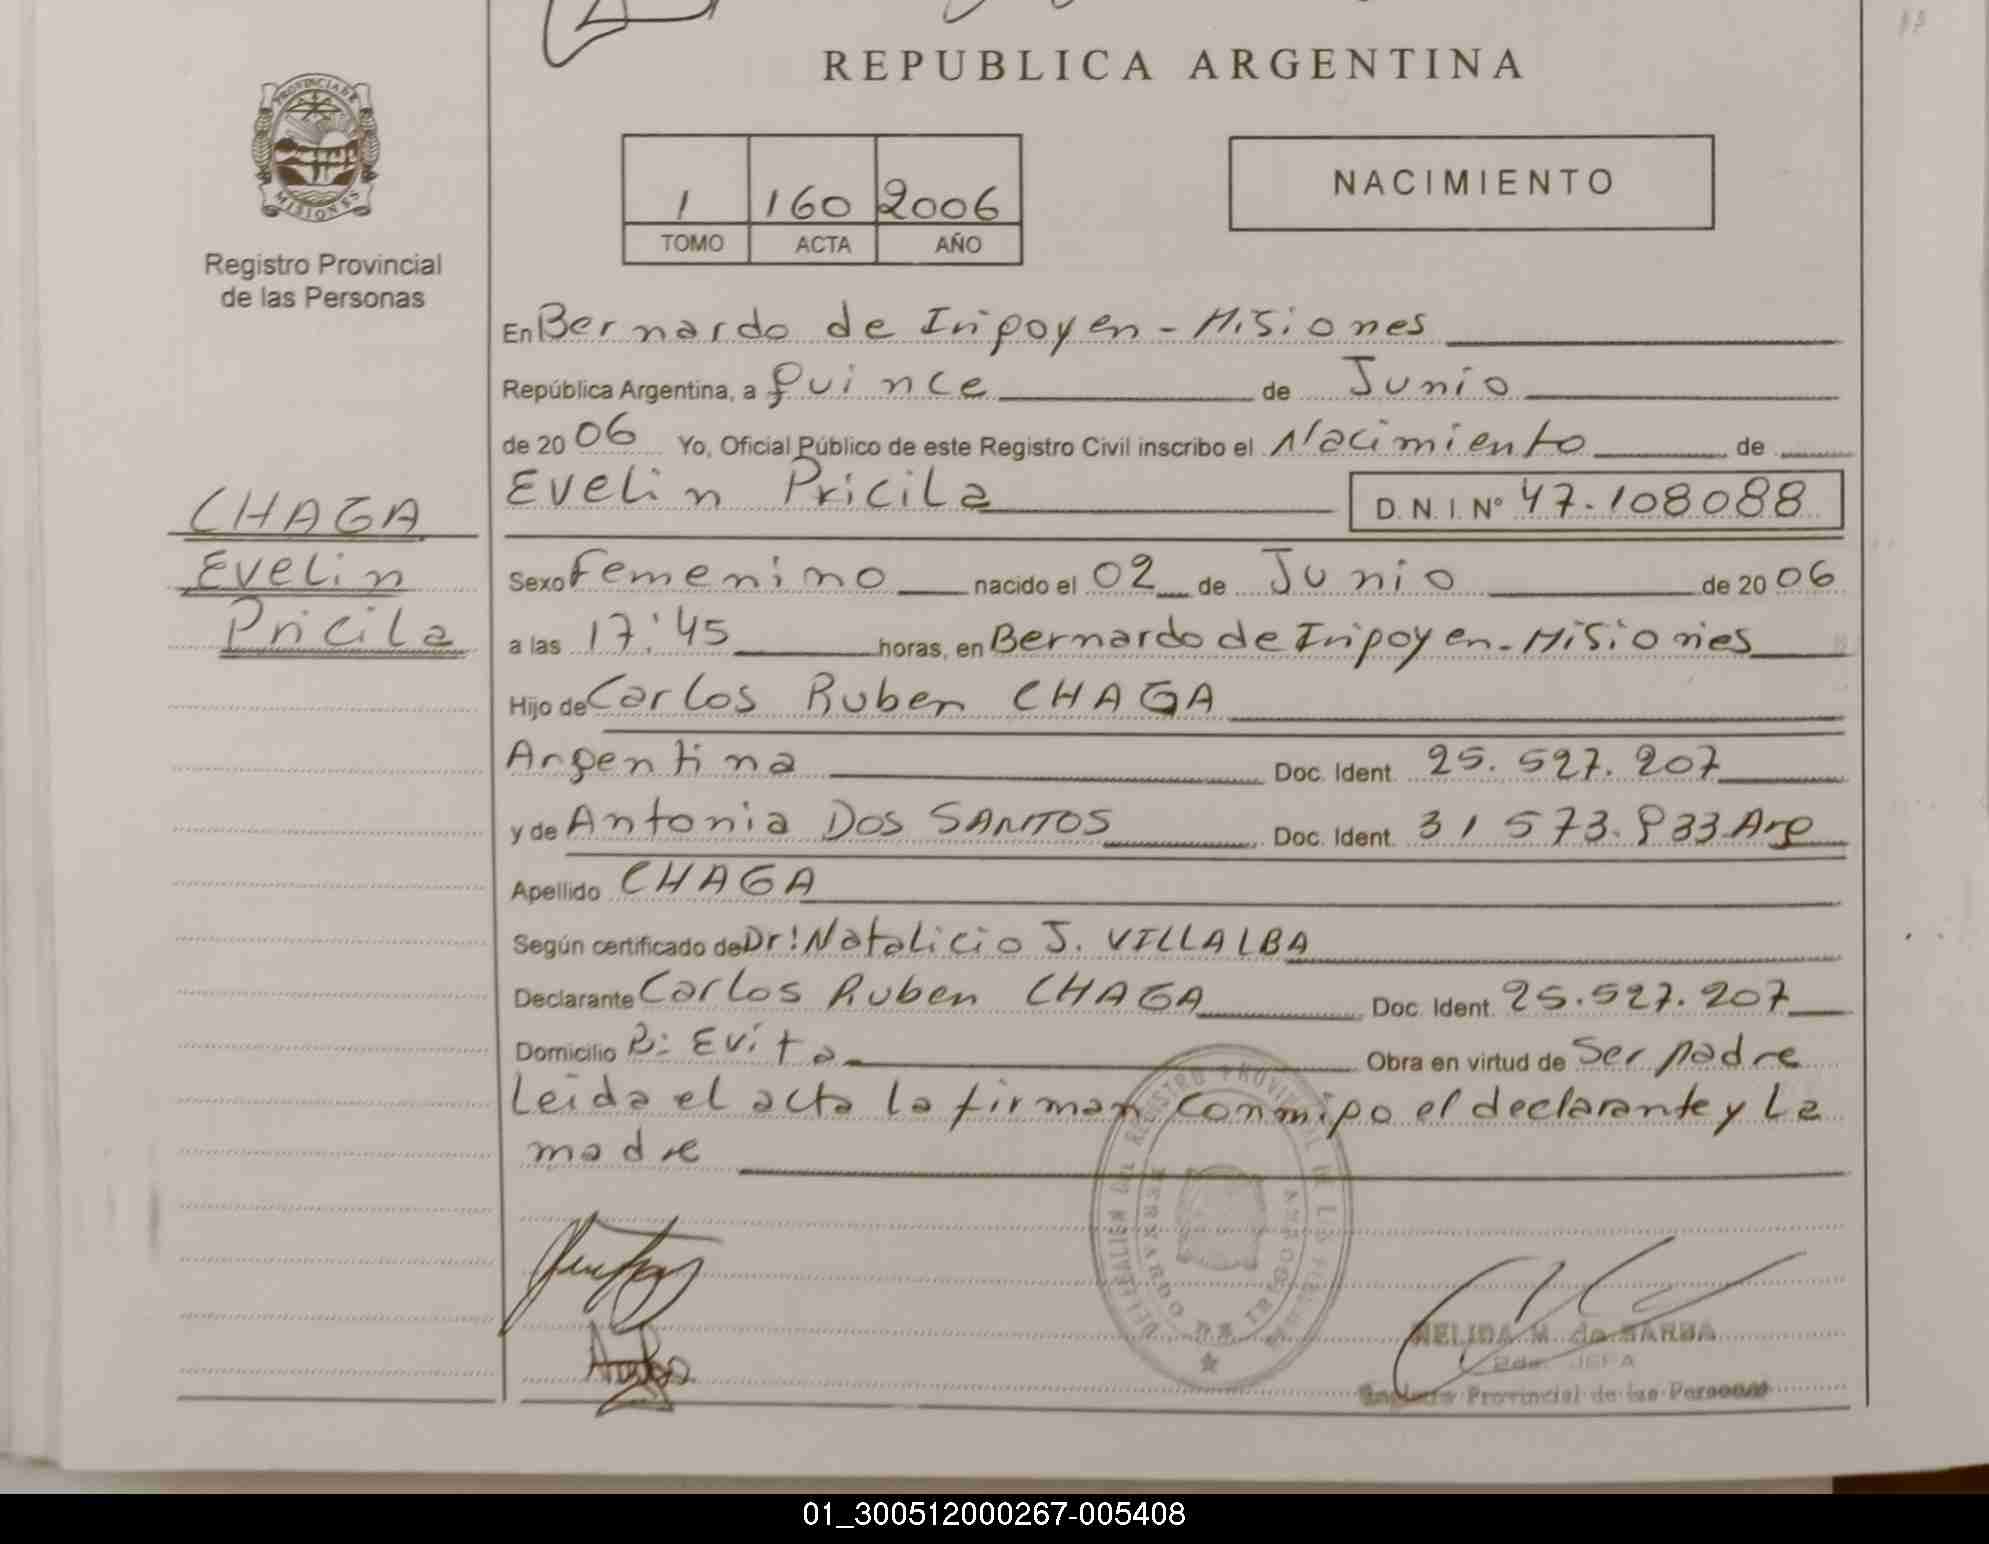 REPUBLICA ARGENTINA
PROVINCIA DE MISIONES
Registro Provincial
de las Personas
1 160 2006
TOMO ACTA AÑO
NACIMIENTO
En Bernardo de Iripoyen - Misiones
República Argentina, a quince de Junio
de 2006 Yo, Oficial Público de este Registro Civil inscribo el Nacimiento de
Evelin Pricila D. N. I. N° 47.108088
CHAGA
Evelin
Pricila
Sexo Femenino nacido el 02 de Junio de 2006
a las 17:45 horas, en Bernardo de Iripoyen - Misiones
Hijo de Carlos Ruben CHAGA
Argentina Doc. Ident. 25.527.207
y de Antonia DOS SANTOS Doc. Ident. 31573.933 Arg
Apellido CHAGA
Según certificado de Dr: Natalicio J. VILLALBA
Declarante Carlos Ruben CHAGA Doc. Ident. 25.527.207
Domicilio B: Evita Obra en virtud de Ser padre
Leida el acta la firman conmigo el declarante y La
madre
DELEGACION DEL REGISTRO PROVINCIAL DE LAS PERSONAS
BERNARDO DE IRIGOYEN
NELIDA M. de BARBA
2da. JEFA
Registro Provincial de las Personas
01_300512000267-005408